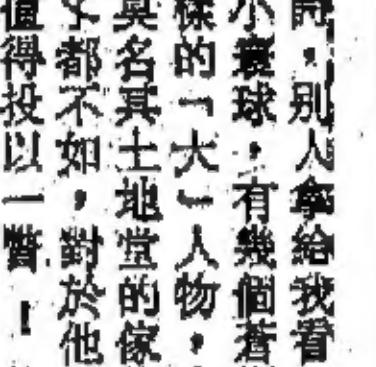 ，别人拿給我看
小寰球，有幾個蒼
樣的「大」人物，
莫名其土地堂的傢
都不如，對於他
值得投以一瞥！